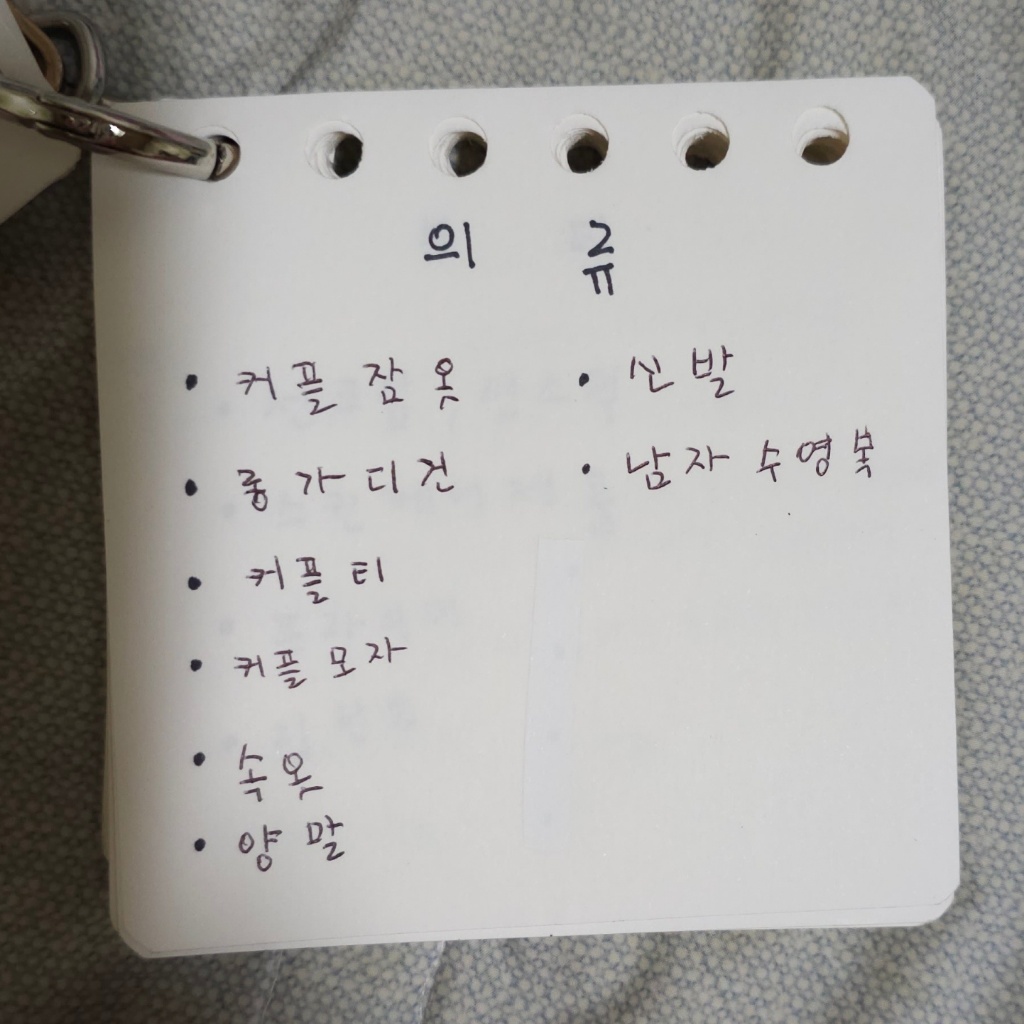 의 류
• 커플 잠옷
• 롱가디건
• 커플티
• 커플모자
• 속옷
• 양말
• 신발
• 남자 수영복